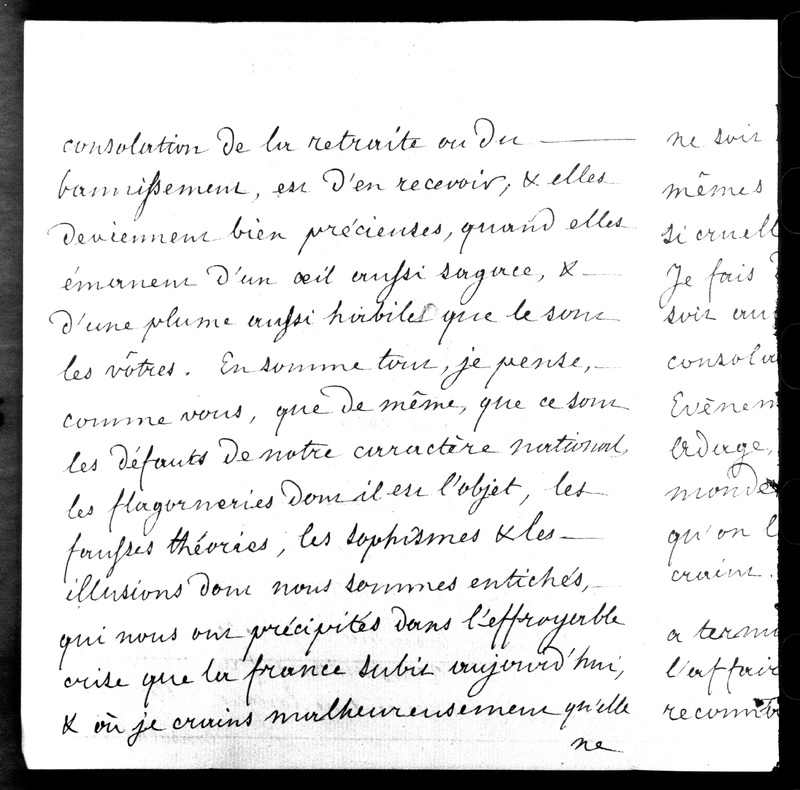 consolation de la retraite ou du
bannissement, est d'en recevoir, & elles
deviennent bien précieuses, quand elles
émanent d'un œil aussi sagace, &
d'une plume aussi habile que le sont
les vôtres. En somme tout, je pense,
comme vous, que de même, que ce sont
les défauts de notre caractère national,
les flagorneries dont il est l'objet, les
fausses théories, les sophismes & les
illusions dont nous sommes entichés,
qui nous ont précipités dans l'effroyable
crise que la france subit aujourd'hui,
& où je crains malheureusement qu'elle
ne
ne soit
mêmes
si cruell
Je fais
soit au
consola
Evènem
adage,
monde
qu'on l
craint.
a termi
l'affair